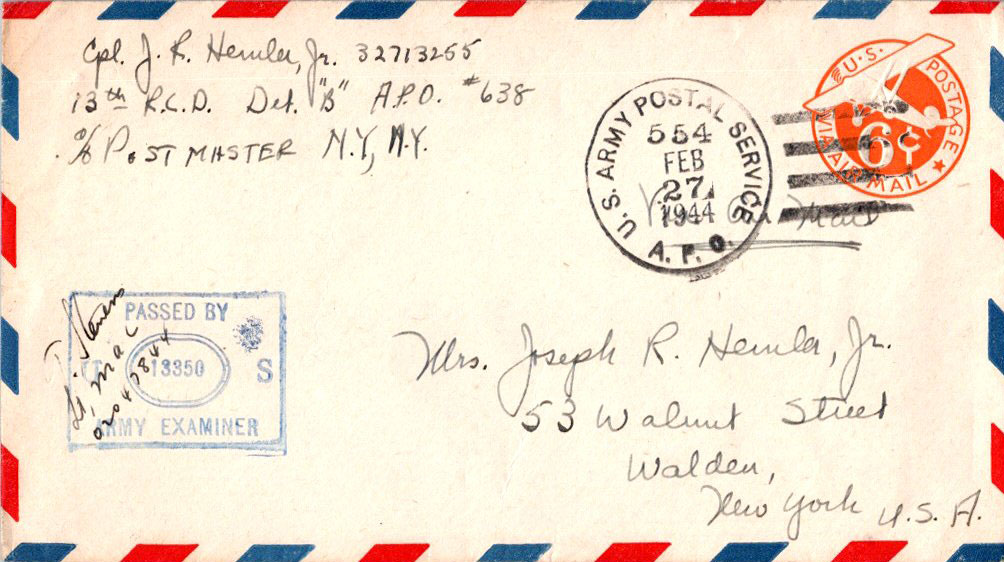 Cpl. J. R. Hemler, Jr. 32713255
13th R.C.D. Det. "B" A.P.O. #638
c/o POSTMASTER N.Y., N.Y.
U.S. POSTAGE
6¢
VIA AIR MAIL
U. S. ARMY POSTAL SERVICE
554
FEB
27
1944
A. P. O.
Via Air Mail
PASSED BY
U S
13350
ARMY EXAMINER
Mrs. Joseph R. Hemler, Jr.
53 Walnut Street
Walden,
New York U.S.A.